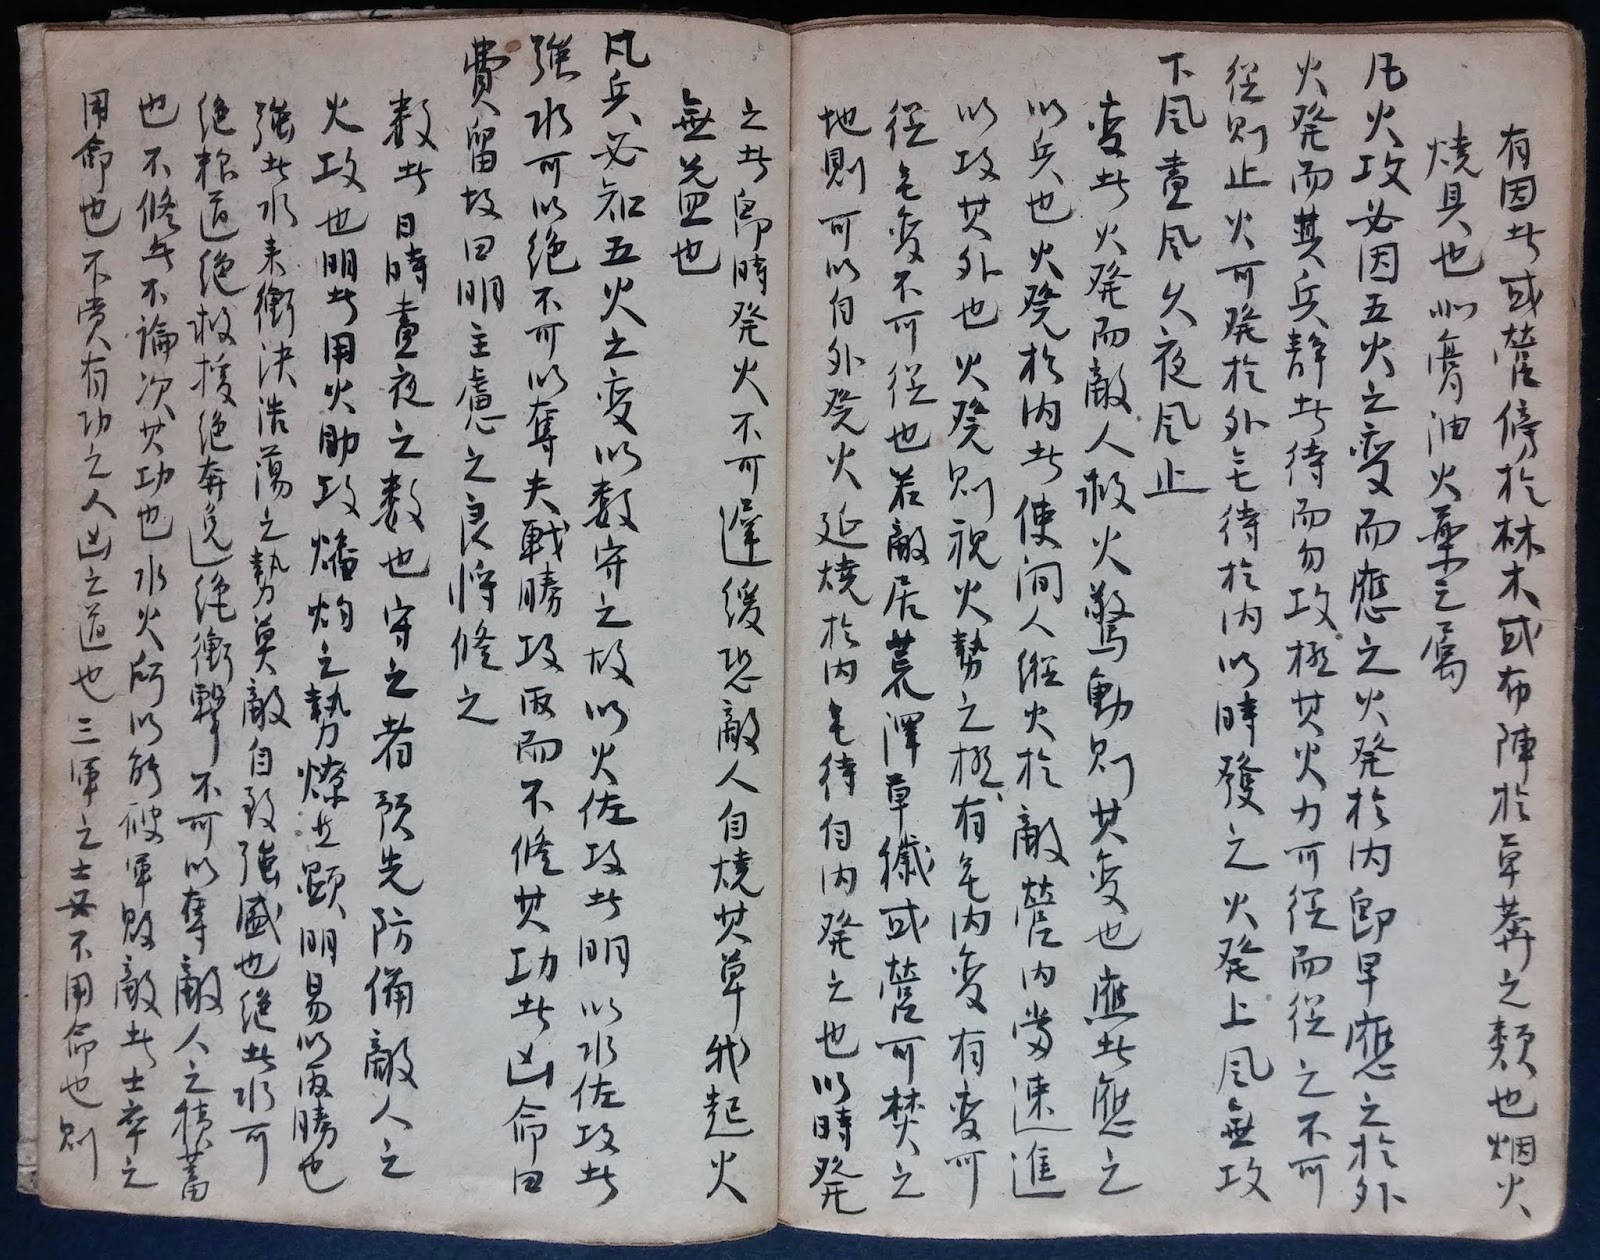 有因者或營傍於林木或布陣於草莽之類也烟火
燒具也如膏油火藥之属
凡火攻必因五火之变而應之火発於内即早應之於外
火発而其兵静者待而勿攻極其火力可從而從之不可
從則止火可発於外無待於内以時發之火発上風無攻
下風晝風久夜風止
变者火発而敵人救火驚動則其变也應者應之
以兵也火発於内者使间人縱火於敵營内當速進
以攻其外也火発則視火勢之極有無内变有变可
從無变不可從也若敵居荒澤草穢或營可焚之
地則可以自外発火延燒於内無待自内発之也以時発
之者即時発火不可遲緩恐敵人自燒其草我起火
無益也
凡兵必知五火之变以数守之故以火佐攻者明以水佐攻者
強水可以绝不可以奪夫戰勝攻取而不修其功者凶命曰
費留故曰明主慮之良將修之
数者日時晝夜之数也守之者预先防備敵人之
火攻也明者用火助攻燔灼之勢燎然顕明易以取勝也
強者水来衝決浩蕩之勢莫敵自致強盛也绝者水可
绝粮道绝救援绝奔逸绝衝擊不可以奪敵人之積蓄
也不修者不論次其功也水火所以能破軍敗敵者士卒之
用命也不賞有功之人凶之道也三軍之士無不用命也則